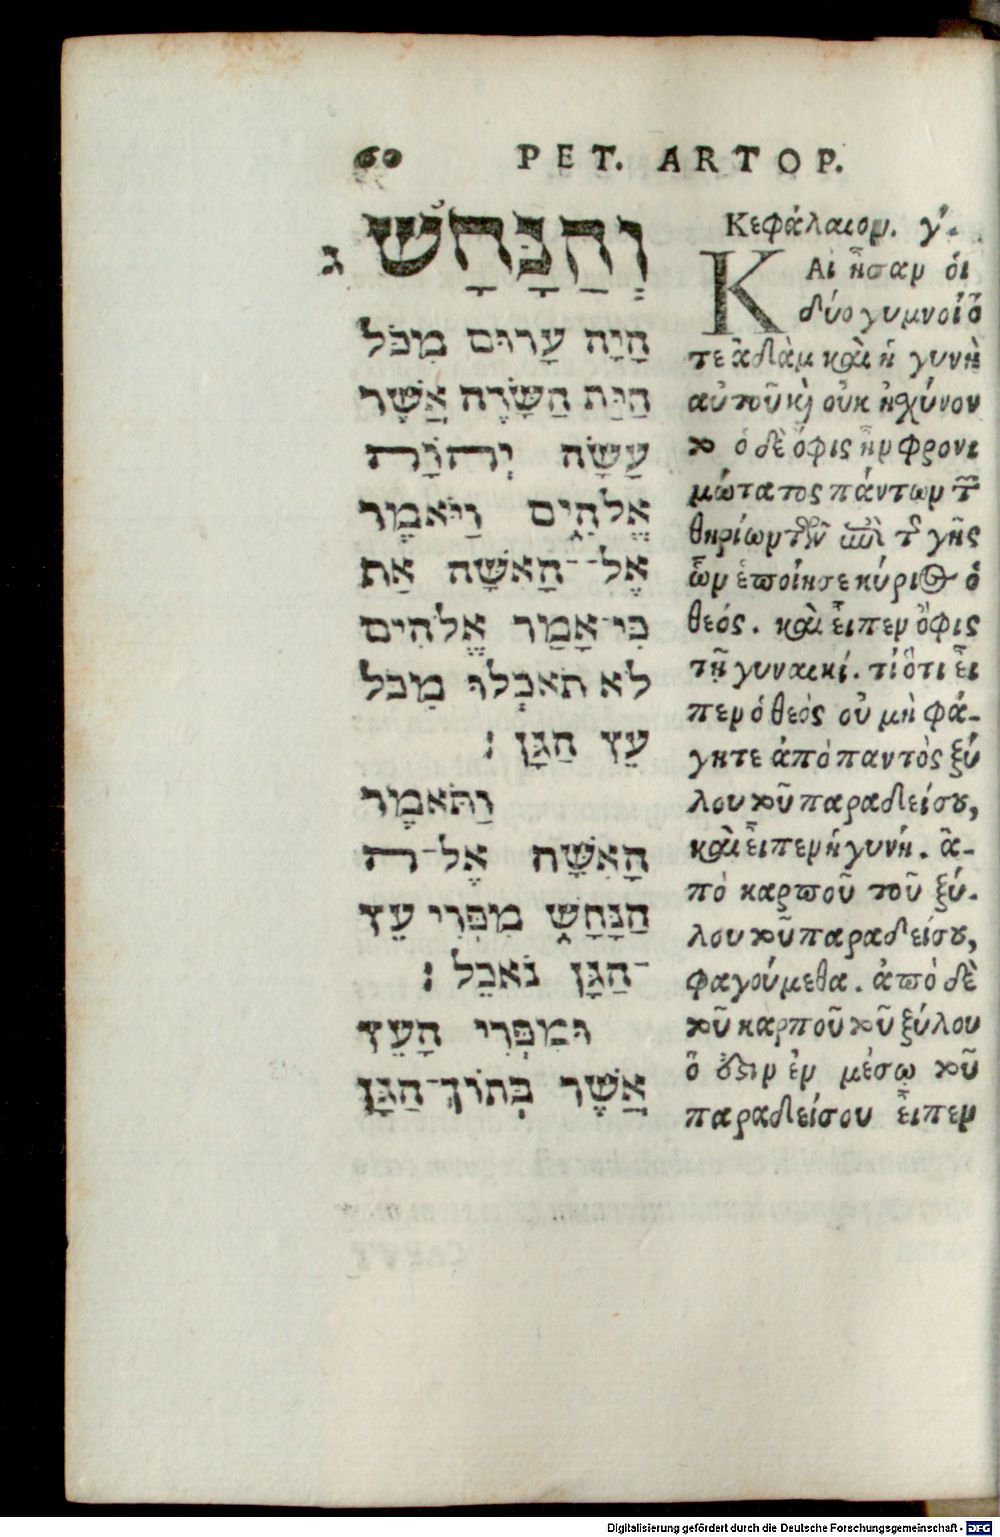 60 PET. ARTOP.
ג וְהַנָּחָשׁ
הָיָה עָרוּם מִכֹּל
הַיַּת הַשָּׂרֶה אֲשֶׁר
עָשָׂה יְהוָֹה
אֱלֹהִים וַיֹּאמֶר
אֶל־־הָאִשָּׁה אַת
כִּי־אָמַר אֱלֹהִים
לֹא תֹאכְלוּ מִכֹּל
עֵץ הַגָּן׃
וַתֹּאמֶר
הָאִשָּׁה אֶל־ה
הַנָּחָשׁ מִפְּרִי עֵץ
־הַגָּן נֹאכֵל׃
וּמִפְּרִי הָעֵץ
אֲשֶׁר בְּתוֹךְ־הַגָּן
Κεφάλαιον. γ΄.
ΚΑὶ ἦσαν ὁι
δύο γυμνοὶ ὅ
τε ἀδὰμ καὶ ἡ γυνὴ
αὐτοῦ κὶ οὐκ ἠσχύνον
το ὁ δὲ ὄφις ἦν φρονι
μώτατος πάντων τῶν
θηρίων τῶν ἐπὶ τ͂ γῆς
ὧν ἐποίησε κύριος ὁ
θεός. καὶ εἶπεν ὄφις
τῇ γυναικί. τί ὅτι εἶ
πεν ὁ θεὸς οὐ μὴ φά-
γητε ἀπὸ παντὸς ξύ
λου τοῦ παραδείσου,
καὶ εἶπεν ἡ γυνή. ἀ-
πὸ καρποῦ τοῦ ξύ-
λου τοῦ παραδείσου,
φαγούμεθα. ἀπὸ δὲ
τοῦ καρποῦ τοῦ ξύλου
ὅ ἐστιν ἐν μέσῳ τοῦ
παραδείσου εἶπεν
Digitalisierung gefördert durch die Deutsche Forschungsgemeinschaft - DFG